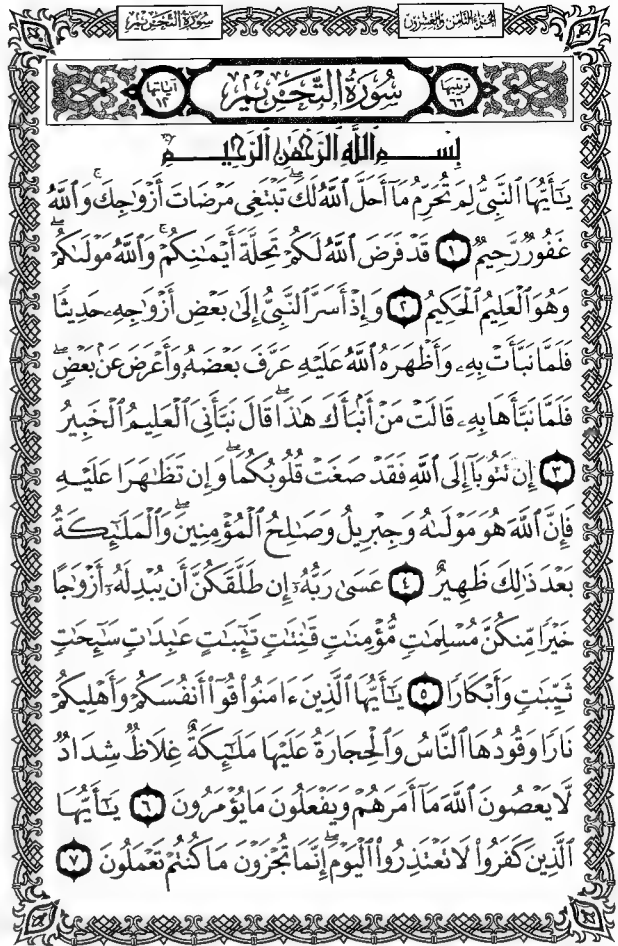 سُورَةُ التَّحْرِيمِ
الجزء الثامن والعشرون
ترتيبها ٦٦
سُورَةُ التَّحْرِيمِ
آياتها ١٢
بِسْمِ اللَّهِ الرَّحْمَٰنِ الرَّحِيمِ
يَٰٓأَيُّهَا ٱلنَّبِىُّ لِمَ تُحَرِّمُ مَآ أَحَلَّ ٱللَّهُ لَكَ ۖ تَبْتَغِى مَرْضَاتَ أَزْوَٰجِكَ ۚ وَٱللَّهُ
غَفُورٌ رَّحِيمٌ ١ قَدْ فَرَضَ ٱللَّهُ لَكُمْ تَحِلَّةَ أَيْمَٰنِكُمْ ۚ وَٱللَّهُ مَوْلَىٰكُمْ ۖ
وَهُوَ ٱلْعَلِيمُ ٱلْحَكِيمُ ٢ وَإِذْ أَسَرَّ ٱلنَّبِىُّ إِلَىٰ بَعْضِ أَزْوَٰجِهِۦ حَدِيثًا
فَلَمَّا نَبَّأَتْ بِهِۦ وَأَظْهَرَهُ ٱللَّهُ عَلَيْهِ عَرَّفَ بَعْضَهُۥ وَأَعْرَضَ عَنۢ بَعْضٍ ۖ
فَلَمَّا نَبَّأَهَا بِهِۦ قَالَتْ مَنْ أَنۢبَأَكَ هَٰذَا ۖ قَالَ نَبَّأَنِىَ ٱلْعَلِيمُ ٱلْخَبِيرُ
٣ إِن تَتُوبَآ إِلَى ٱللَّهِ فَقَدْ صَغَتْ قُلُوبُكُمَا ۖ وَإِن تَظَٰهَرَا عَلَيْهِ
فَإِنَّ ٱللَّهَ هُوَ مَوْلَىٰهُ وَجِبْرِيلُ وَصَٰلِحُ ٱلْمُؤْمِنِينَ ۖ وَٱلْمَلَٰٓئِكَةُ
بَعْدَ ذَٰلِكَ ظَهِيرٌ ٤ عَسَىٰ رَبُّهُۥٓ إِن طَلَّقَكُنَّ أَن يُبْدِلَهُۥٓ أَزْوَٰجًا
خَيْرًا مِّنكُنَّ مُسْلِمَٰتٍ مُّؤْمِنَٰتٍ قَٰنِتَٰتٍ تَٰٓئِبَٰتٍ عَٰبِدَٰتٍ سَٰٓئِحَٰتٍ
ثَيِّبَٰتٍ وَأَبْكَارًا ٥ يَٰٓأَيُّهَا ٱلَّذِينَ ءَامَنُوا۟ قُوٓا۟ أَنفُسَكُمْ وَأَهْلِيكُمْ
نَارًا وَقُودُهَا ٱلنَّاسُ وَٱلْحِجَارَةُ عَلَيْهَا مَلَٰٓئِكَةٌ غِلَاظٌ شِدَادٌ
لَّا يَعْصُونَ ٱللَّهَ مَآ أَمَرَهُمْ وَيَفْعَلُونَ مَا يُؤْمَرُونَ ٦ يَٰٓأَيُّهَا
ٱلَّذِينَ كَفَرُوا۟ لَا تَعْتَذِرُوا۟ ٱلْيَوْمَ ۖ إِنَّمَا تُجْزَوْنَ مَا كُنتُمْ تَعْمَلُونَ ٧